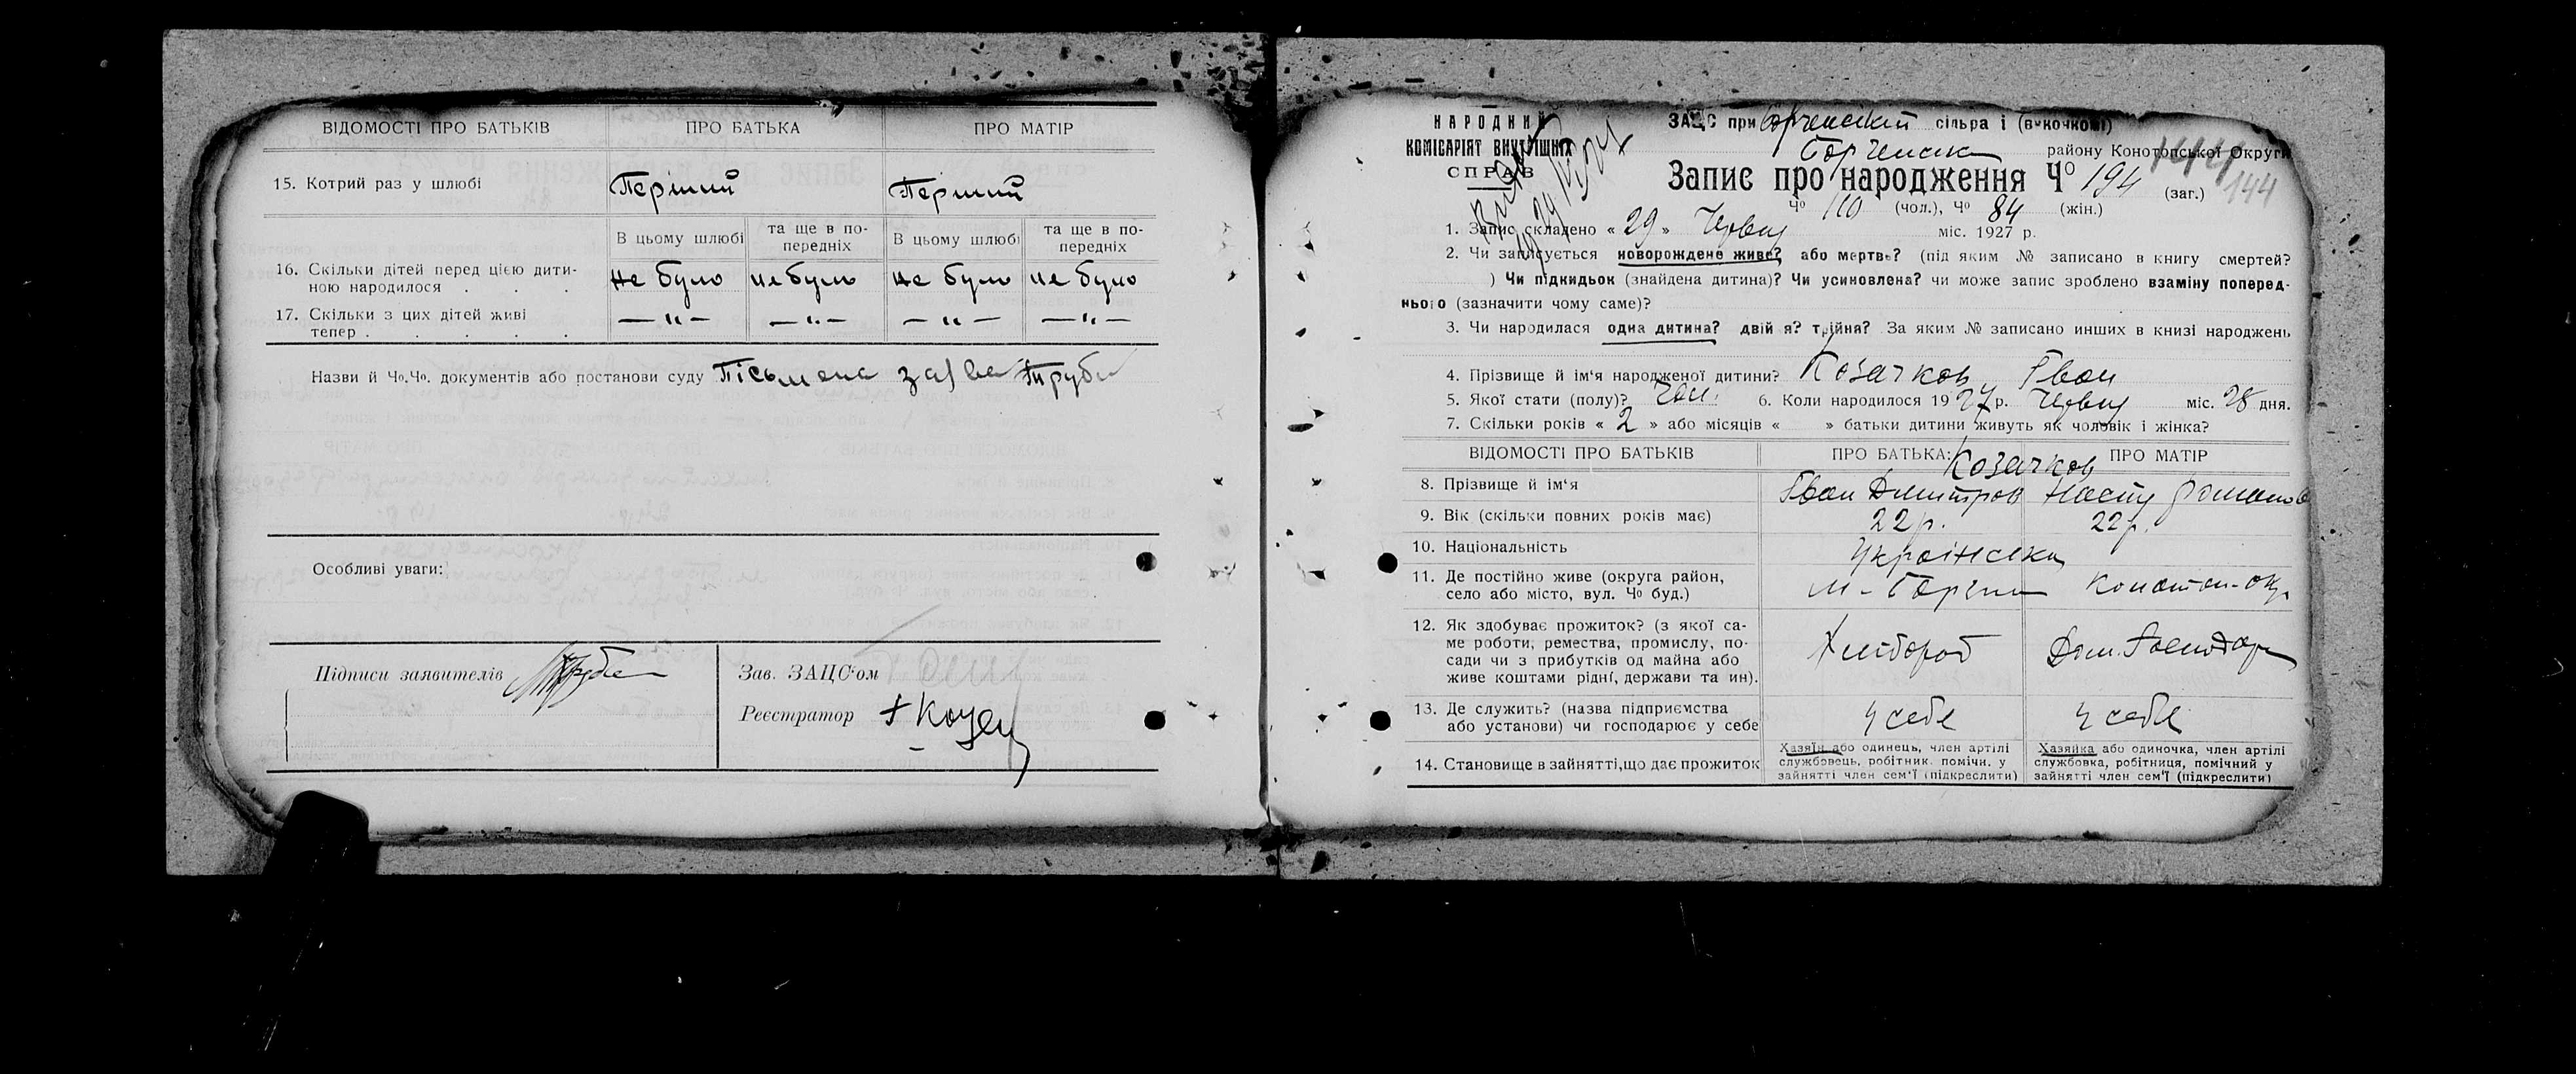 ВІДОМОСТІ ПРО БАТЬКІВ ПРО БАТЬКА ПРО МАТІР
15. Котрий раз у шлюбі Перший Перший
В цьому шлюбі та ще в по-передніх В цьому шлюбі та ще в по-передніх
16. Скільки дітей перед цією дити-
ною народилося . . . не було не було не було не було
17. Скільки з цих дітей живі
тепер . . . . . — " — — " — — " — — " —
Назви й Чо.Чо. документів або постанови суду Пісьмена заява Труби
Особливі уваги:
Підписи заявителів
Зав. ЗАЦС'ом
Реєстратор
НАРОДНИЙ
КОМІСАРІЯТ ВНУТРІШНІХ
СПРАВ
ЗАЦС при сільра і (виконкомі)
району Конотопської Округи
Запис про народження Чо 194 (заг.) 144
Чо 110 (чол.), Чо 84 (жін.)
1. Запис складено « 29 » Червня міс. 1927 р.
2. Чи записується новорождене живе? або мертве? (під яким № записано в книгу смертей?
) Чи підкидьок (знайдена дитина)? Чи усиновлена? чи може запис зроблено взаміну поперед-
нього (зазначити чому саме)?
3. Чи народилася одна дитина? двійня? трійня? За яким № записано инших в книзі народжень
4. Прізвище й ім'я народженої дитини? Козачков Іван
5. Якої стати (полу)? Чол. 6. Коли народилося 1927 р. Червня міс. 28 дня.
7. Скільки років « 2 » або місяців « » батьки дитини живуть як чоловік і жінка?
ВІДОМОСТІ ПРО БАТЬКІВ ПРО БАТЬКА: ПРО МАТІР
Козачков
8. Прізвище й ім'я Іван Дмитров Настя Романов
9. Вік (скільки повних років має) 22 р. 22 р.
10. Національність Українська
11. Де постійно живе (округа район,
село або місто, вул. Чо буд.) Конотоп- окр.
12. Як здобуває прожиток? (з якої са-
ме роботи, ремества, промислу, по-
сади чи з прибутків од майна або
живе коштами рідні, держави та ин). Хлібороб Дом. Господар
13. Де служить? (назва підприємства
або установи) чи господарює у себе у себе у себе
14. Становище в зайнятті, що дає прожиток
Хазяїн або одинець, член артілі
службовець, робітник. помічн. у
зайнятті член сем'ї (підкреслити)
Хазяйка або одиночка, член артілі
службовка, робітниця, помічний у
зайнятті член сем'ї (підкреслити)